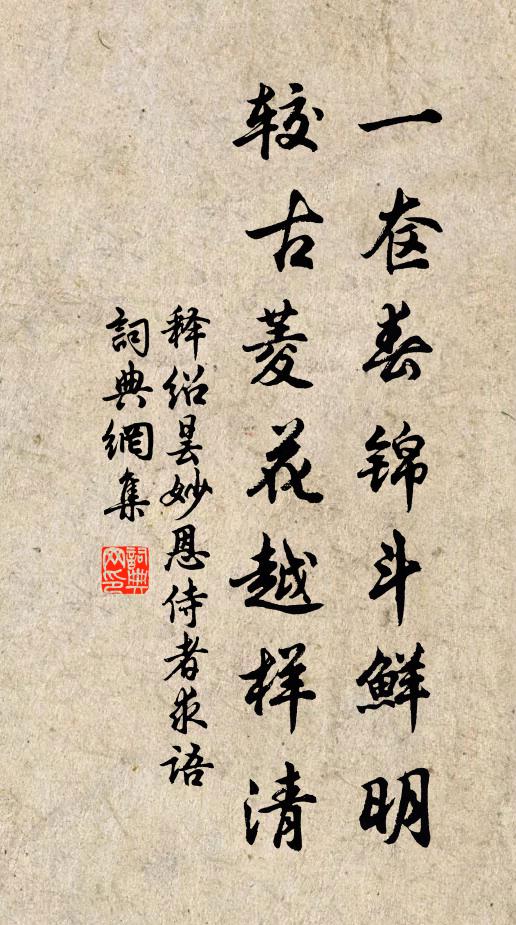 一奁春锦斗鲜明
较古菱花越样清
释绍昙妙恩侍者求语
詞典網集
詞典网印